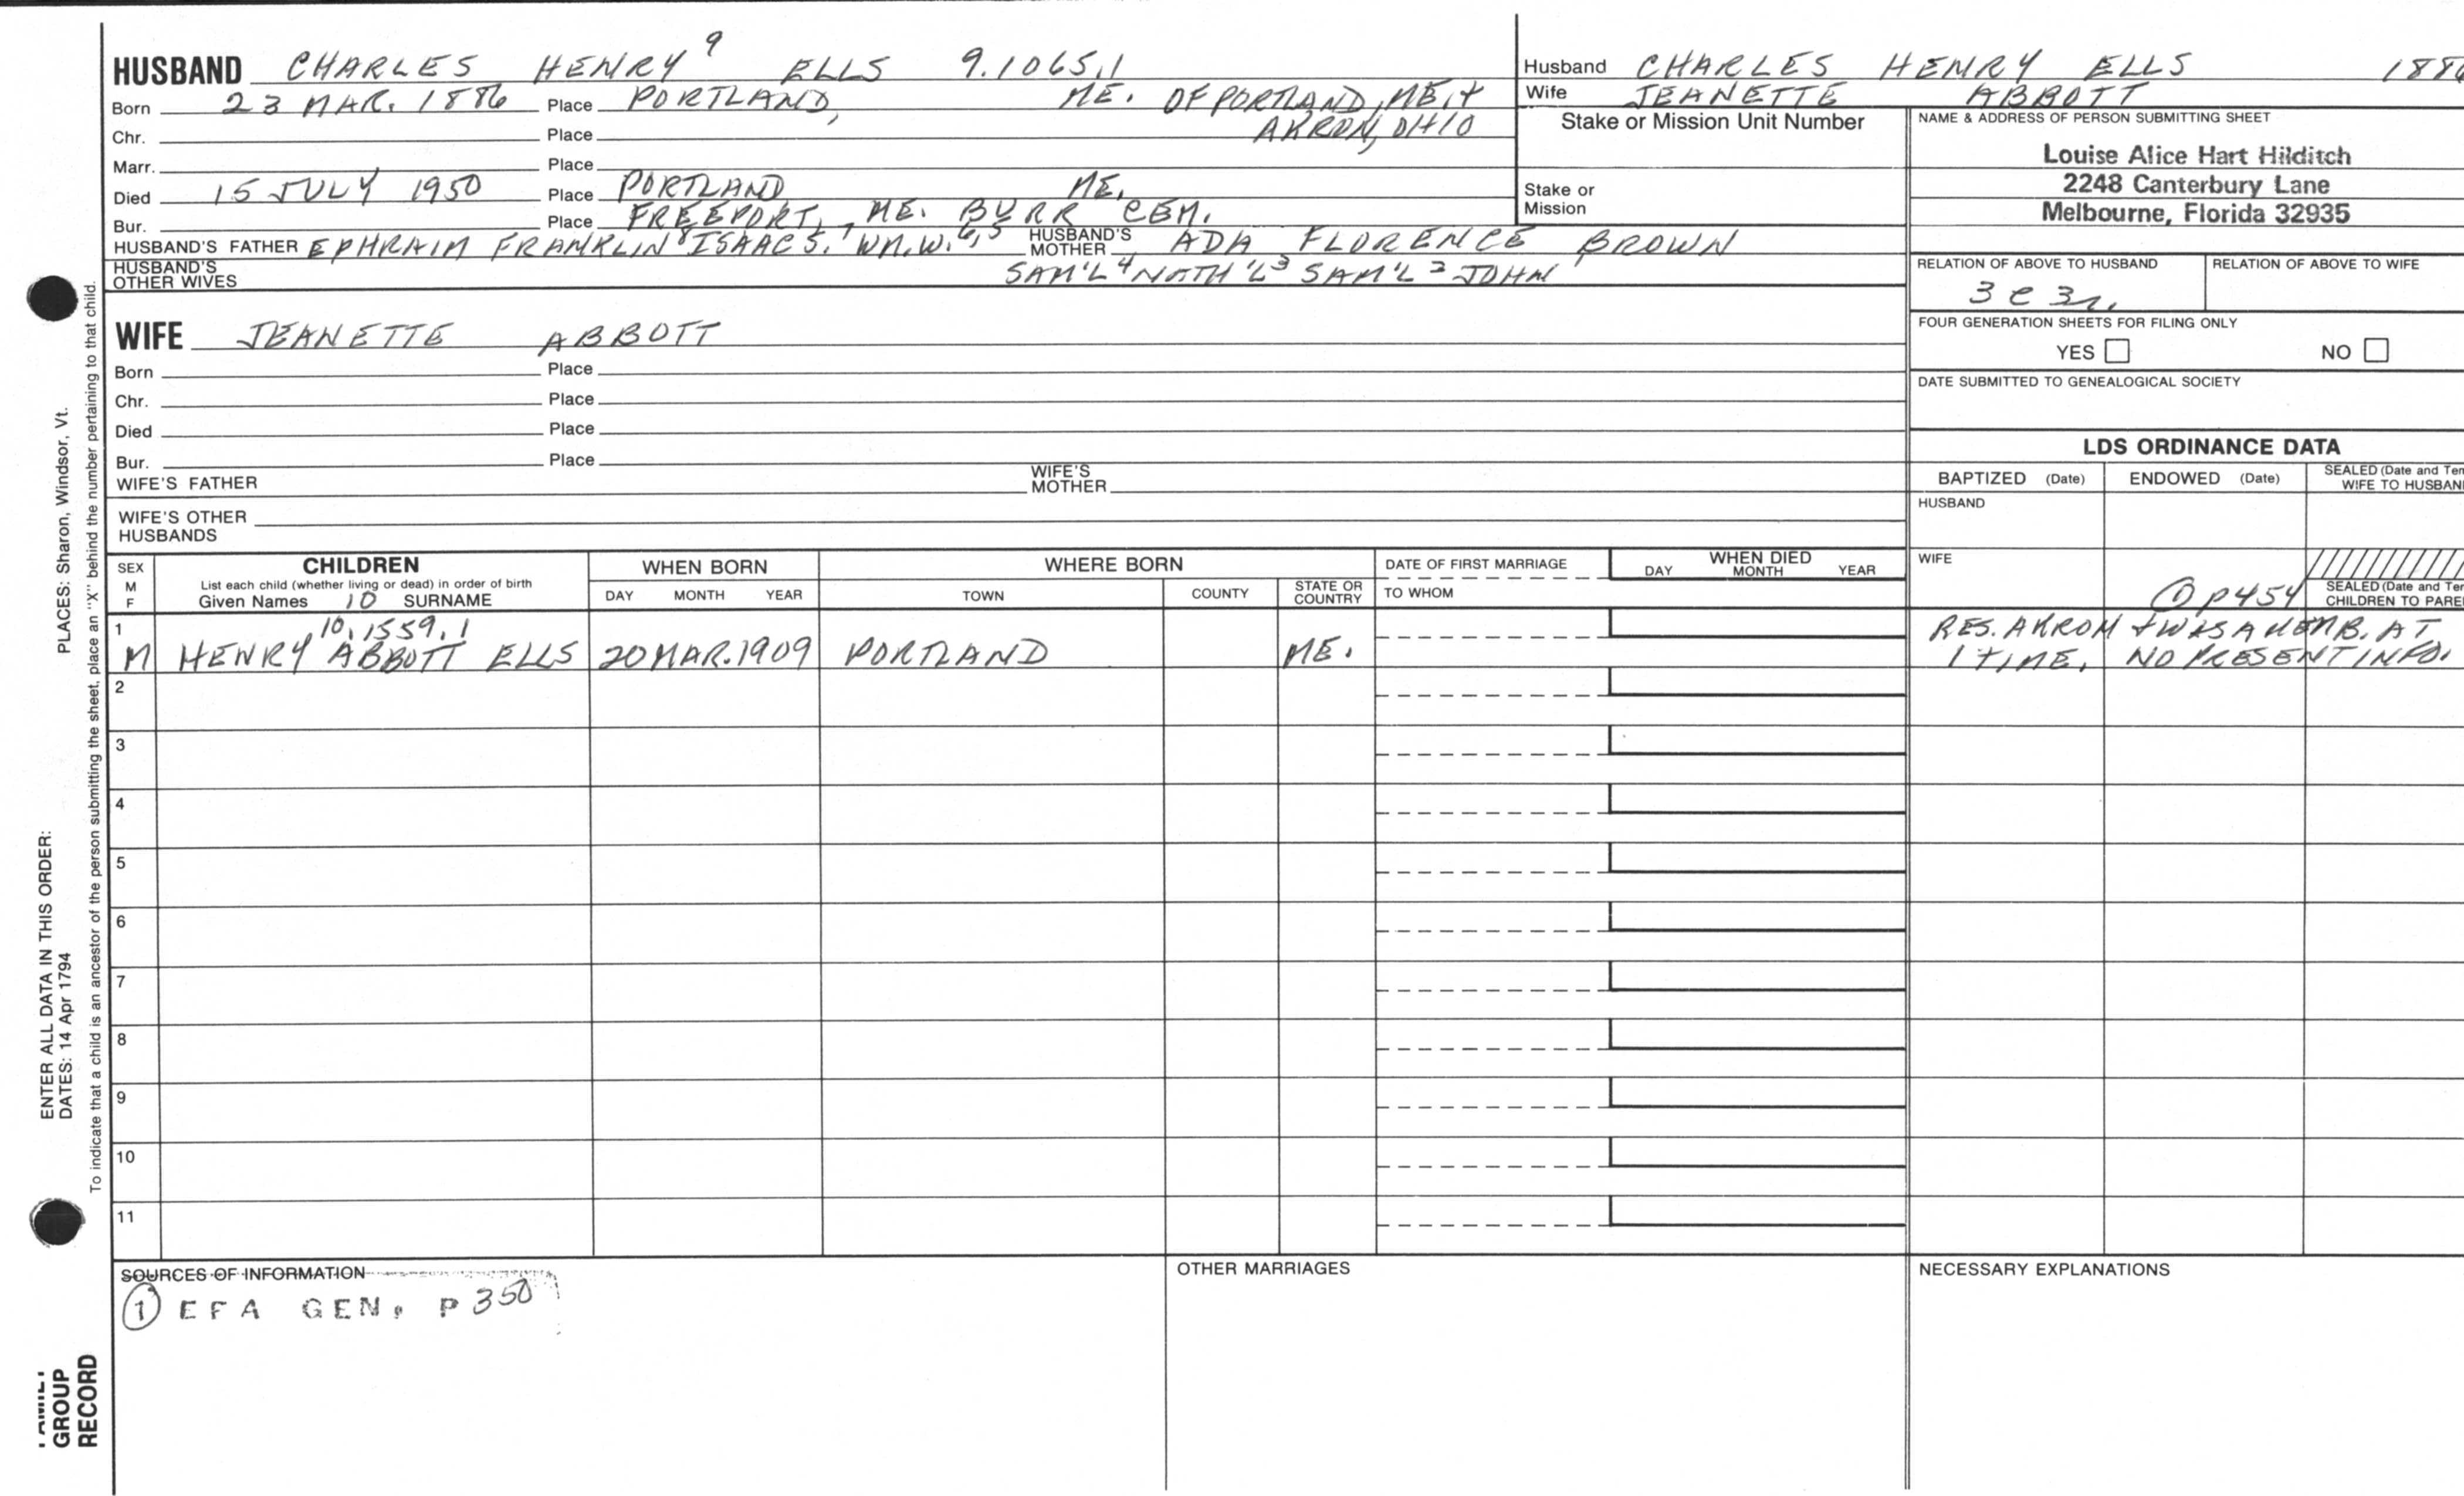 HUSBAND CHARLES HENRY⁹ ELLS 9.1065.1
Born 23 MAR. 1886 Place PORTLAND, ME. OF PORTLAND, ME, +
Chr. Place AKRON, OHIO
Marr. Place
Died 15 JULY 1950 Place PORTLAND ME.
Bur. Place FREEPORT, , ME. BURR CEM.
HUSBAND'S FATHER EPHRAIM FRANKLIN⁸ ISAAC S.⁷ WM. W.⁶,⁵ HUSBAND'S MOTHER ADA FLORENCE BROWN
HUSBAND'S OTHER WIVES SAM'L⁴ NATH'L³ SAM'L² JOHN¹
WIFE JEANETTE ABBOTT
Born Place
Chr. Place
Died Place
Bur. Place
WIFE'S FATHER WIFE'S MOTHER
WIFE'S OTHER HUSBANDS
Husband CHARLES HENRY ELLS
Wife JEANETTE ABBOTT
Stake or Mission Unit Number
Stake or Mission
NAME & ADDRESS OF PERSON SUBMITTING SHEET
Louise Alice Hart Hilditch
2248 Canterbury Lane
Melbourne, Florida 32935
RELATION OF ABOVE TO HUSBAND RELATION OF ABOVE TO WIFE
3 C 3 r.
FOUR GENERATION SHEETS FOR FILING ONLY
YES NO
DATE SUBMITTED TO GENEALOGICAL SOCIETY
LDS ORDINANCE DATA
BAPTIZED (Date) ENDOWED (Date) SEALED (Date and Tem
WIFE TO HUSBAN
HUSBAND
WIFE
① P454 SEALED (Date and Tem
CHILDREN TO PARE
SEX M F CHILDREN WHEN BORN WHERE BORN DATE OF FIRST MARRIAGE WHEN DIED
List each child (whether living or dead) in order of birth
Given Names 10 SURNAME DAY MONTH YEAR TOWN COUNTY STATE OR COUNTRY TO WHOM DAY MONTH YEAR
1 10.1559.1 RES. AKRON + WAS A MEMB. AT
M HENRY ABBOTT ELLS 20 MAR. 1909 PORTLAND ME. 1 TIME. NO PRESENT INFO.
2
3
4
5
6
7
8
9
10
11
SOURCES OF INFORMATION OTHER MARRIAGES NECESSARY EXPLANATIONS
① EFA GEN. P 350
PLACES: Sharon, Windsor, Vt.
ENTER ALL DATA IN THIS ORDER:
DATES: 14 Apr 1794
To indicate that a child is an ancestor of the person submitting the sheet, place an "X" behind the number pertaining to that child.
GROUP
RECORD